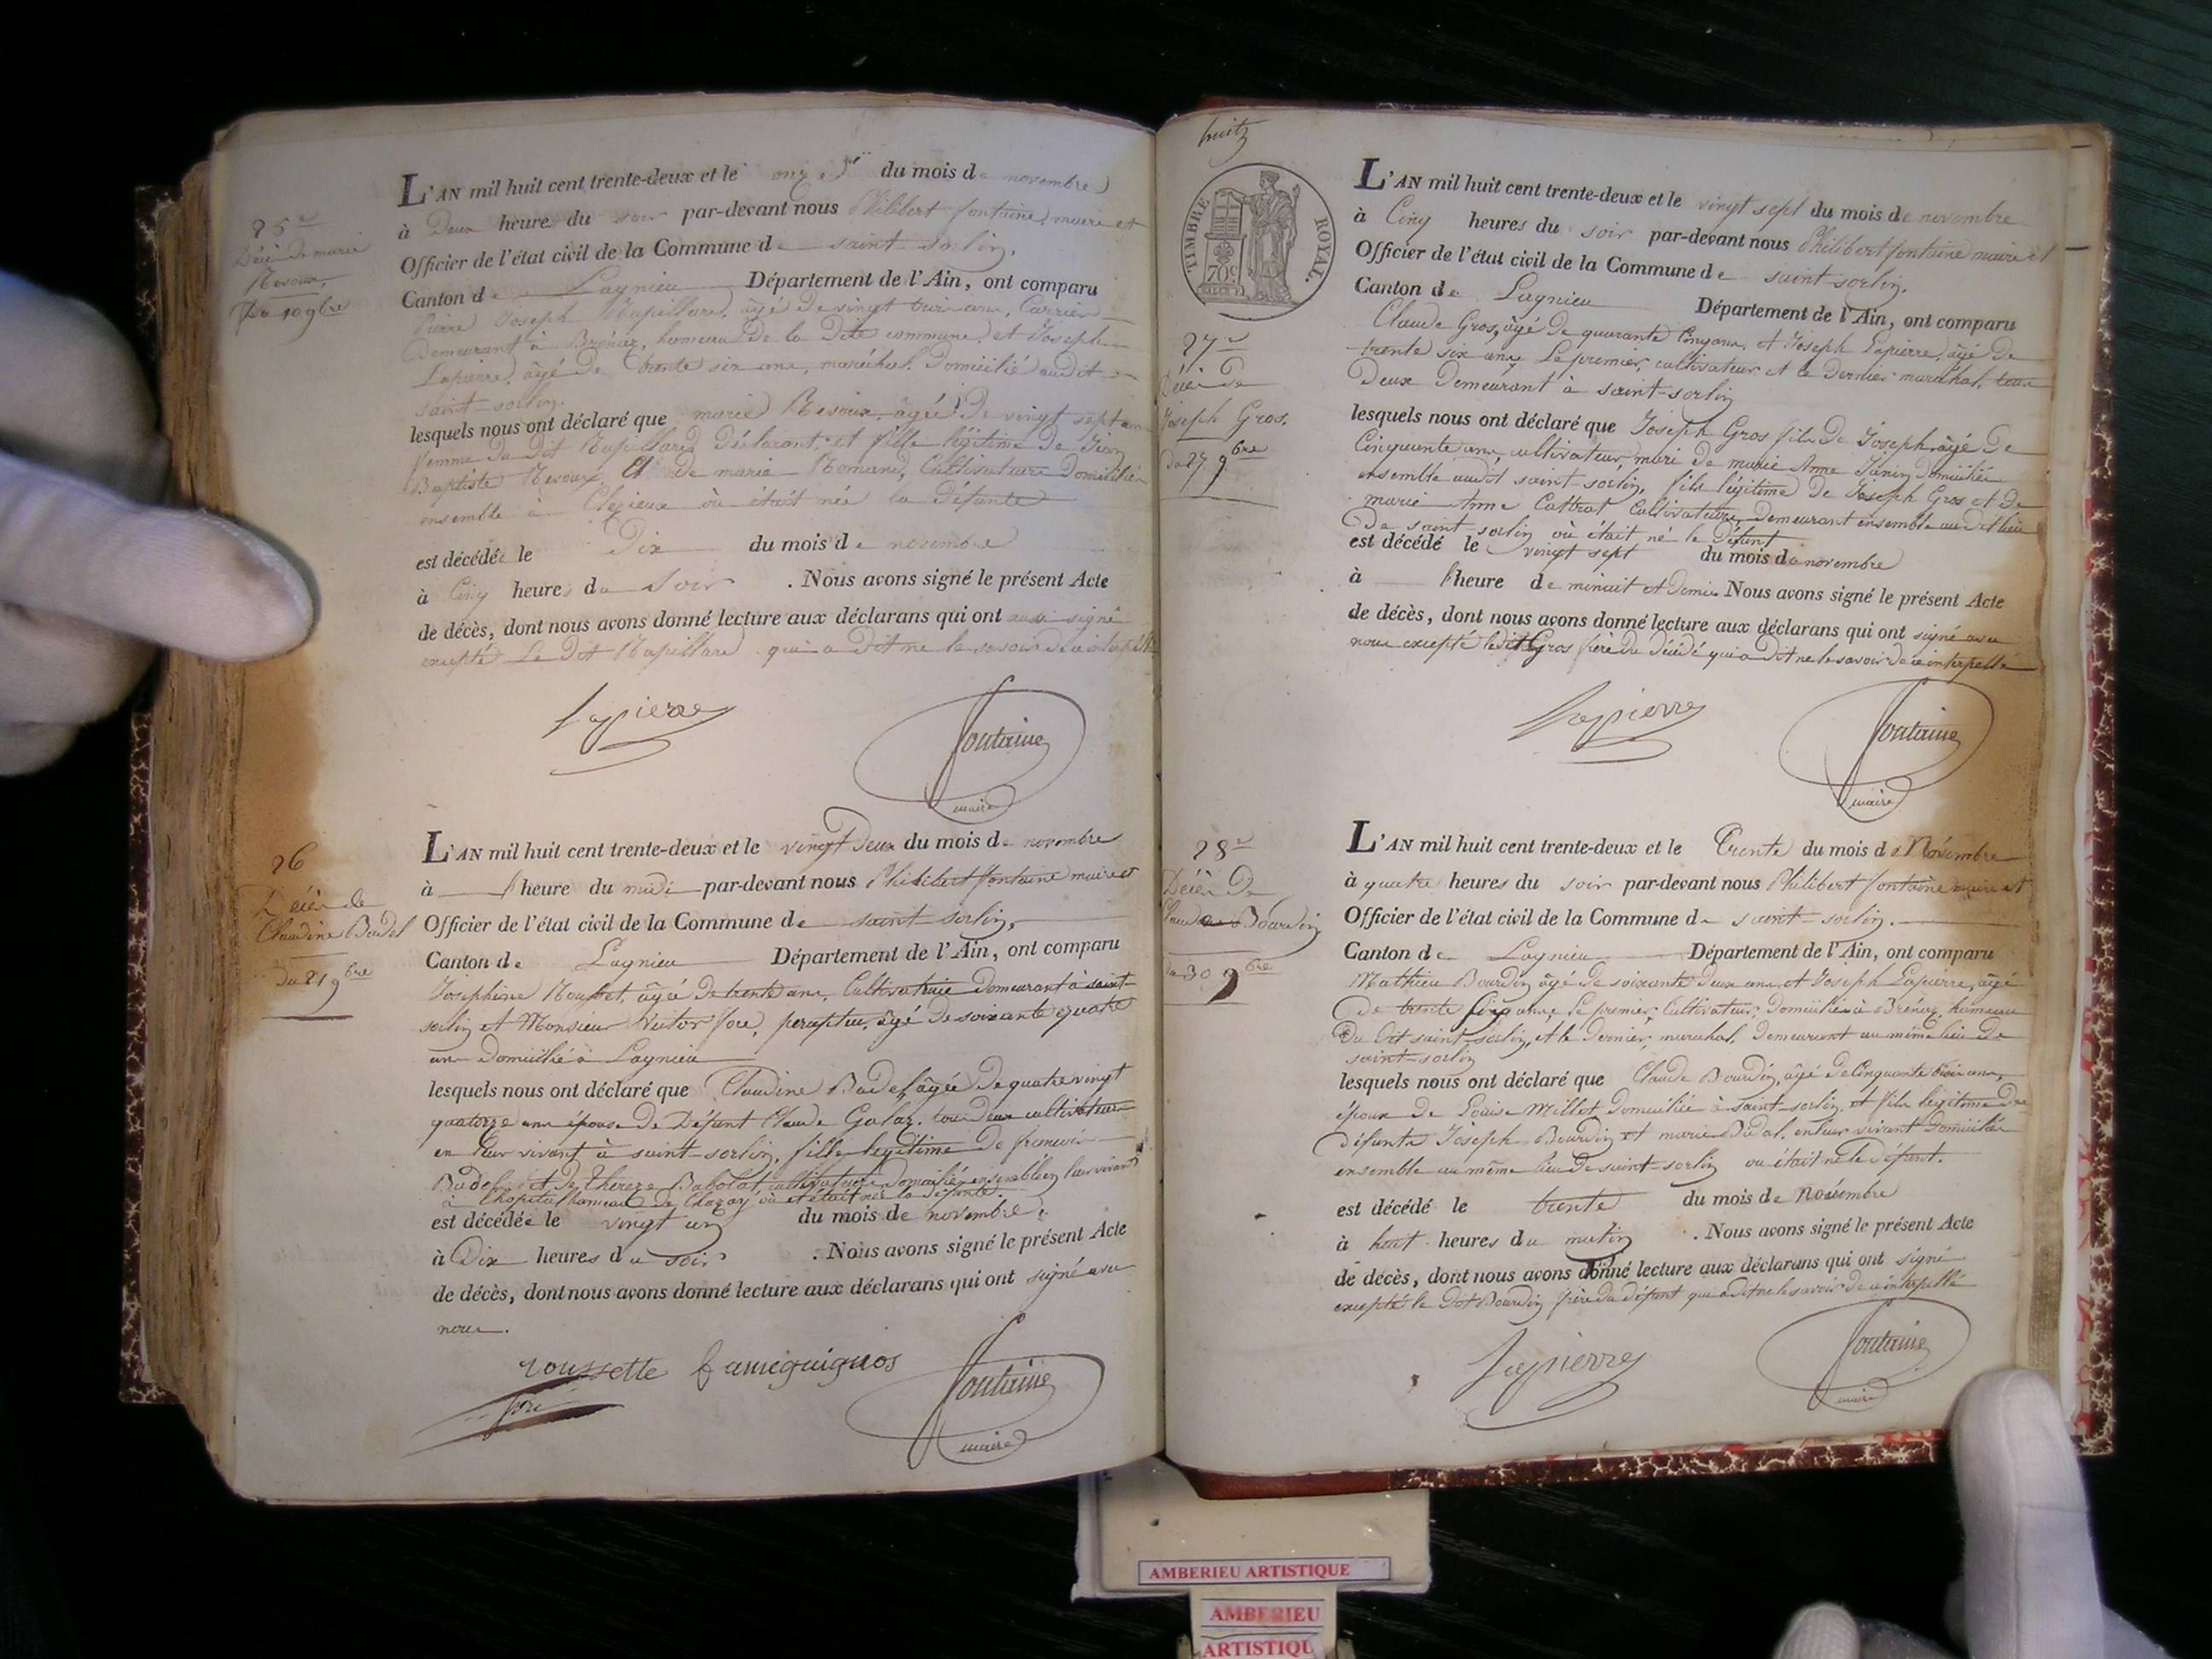 25e
Décès de marie
Nevoux,
Du 10 9bre
L'AN mil huit cent trente-deux et le onze du mois de novembre
à Deux heures du soir par-devant nous Philibert fontaine maire et
Officier de l'état civil de la Commune de saint-sorlin,
Canton de Lagnieu Département de l'Ain, ont comparu
Pierre Joseph Rapillard, âgé de vingt trois ans, Carrier
demeurant à Brénaz, hameau de la Dite commune, et Joseph
Lapierre, âgé de trente six ans, maréchal, Domicilié audit
saint-sorlin.
lesquels nous ont déclaré que marie Nevoux, âgée de vingt sept ans
femme du dit Rapillard Déclarant, et fille légitime de Jean
Baptiste Nevoux, Et de marie Romand, Cultivateurs Domiciliés
ensemble à où était née la défunte
est décédée le Dix du mois de novembre
à Cinq heures du Soir . Nous avons signé le présent Acte
de décès, dont nous avons donné lecture aux déclarans qui ont aussi signé
excepté Le Dit Rapillard qui a Dit ne le savoir de ce interpellé
Lapierre
fontaine
maire
26
Décès de
Claudine Badel
Du 21 9bre
L'AN mil huit cent trente-deux et le vingt Deux du mois de novembre
à l'heure du midi par-devant nous Philibert fontaine maire et
Officier de l'état civil de la Commune de saint-sorlin,
Canton de Lagnieu Département de l'Ain, ont comparu
Josephine Rousset, âgée de trente ans, Cultivatrice demeurant à saint-
sorlin et Monsieur Victor fore, percepteur, âgé de soixante quatre
ans domicilié à Lagnieu
lesquels nous ont déclaré que Claudine Badel, âgée de quatre vingt
quatorze ans épouse de Défunt Claude Galaz, tous deux cultivateurs
en leur vivant à saint-sorlin, fille légitime de francois
Badel et de Therese Babolat, cultivateurs domiciliés ensemble en leur vivant
à Chapitu, hameau de où était née la défunte
est décédée le vingt un du mois de novembre.
à Dix heures du soir . Nous avons signé le présent Acte
de décès, dont nous avons donné lecture aux déclarans qui ont signé avec
nous.
roussette
fore
fontaine
maire
huit
TIMBRE ROYAL.
70c
27e
Décès de
Joseph Gros,
Du 27 9bre
L'AN mil huit cent trente-deux et le vingt sept du mois de novembre
à Cinq heures du soir par-devant nous Philibert fontaine maire et
Officier de l'état civil de la Commune de saint-sorlin,
Canton de Lagnieu Département de l'Ain, ont comparu
Claude Gros, âgé de quarante Cinq ans, et Joseph Lapierre, âgé de
trente six ans, Le premier, cultivateur et le dernier maréchal, tous
Deux Demeurant à saint-sorlin
lesquels nous ont déclaré que Joseph Gros fils de Joseph âgé de
Cinquante ans, cultivateur, mari de marie Anne Janin domiciliés
ensemble audit saint-sorlin, fils légitime de Joseph Gros et de
marie Anne Cultivateurs, demeurant ensemble au dit lieu
De saint sorlin où était né le Défunt
est décédé le vingt sept du mois de novembre
à l'heure de minuit et demie. Nous avons signé le présent Acte
de décès, dont nous avons donné lecture aux déclarans qui ont signé avec
nous excepté ledit Gros frère du décédé qui a dit ne le savoir de ce interpellé
Lapierre
fontaine
maire
28e
Décès De
Claude Bourdin
Du 30 9bre
L'AN mil huit cent trente-deux et le Trente du mois de Novembre
à quatre heures du soir par-devant nous Philibert fontaine maire et
Officier de l'état civil de la Commune de saint-sorlin.
Canton de Lagnieu Département de l'Ain, ont comparu
Mathieu Bourdin âgé de soixante deux ans, et Joseph Lapierre, âgé
de trente ans, le premier, Cultivateur, domicilié à Brénaz, hameau
Du Dit saint-sorlin, et le dernier, maréchal, demeurant au même lieu de
saint-sorlin
lesquels nous ont déclaré que Claude Bourdin, âgé de Cinquante trois ans,
époux de Louise Millet, domicilié à saint-sorlin, et fils légitime de
défunts Joseph Bourdin et marie Bidal, en leur vivant Domiciliés
ensemble au même lieu de saint-sorlin où était né le défunt.
est décédé le trente du mois de Novembre
à huit heures du matin . Nous avons signé le présent Acte
de décès, dont nous avons donné lecture aux déclarans qui ont signé
excepté le Dit Bourdin frère du défunt qui a dit ne le savoir de ce interpellé
Lapierre
fontaine
maire
AMBERIEU ARTISTIQUE
AMBERIEU
ARTISTIQU